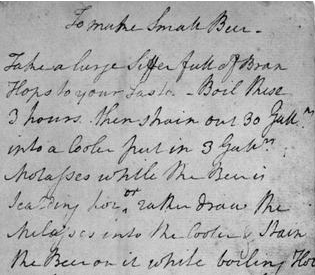 To make Small Beer -
Take a large Siffer full of Bran
Hops to your Taste - Boil these
3 hours. then strain out 30 Gall.n
into a Cooler put in 3 Gall.n
Molasses while the Beer is
Scalding hot or rather draw the
Molasses into the Cooler & Strain
the Beer on it while boiling Hot